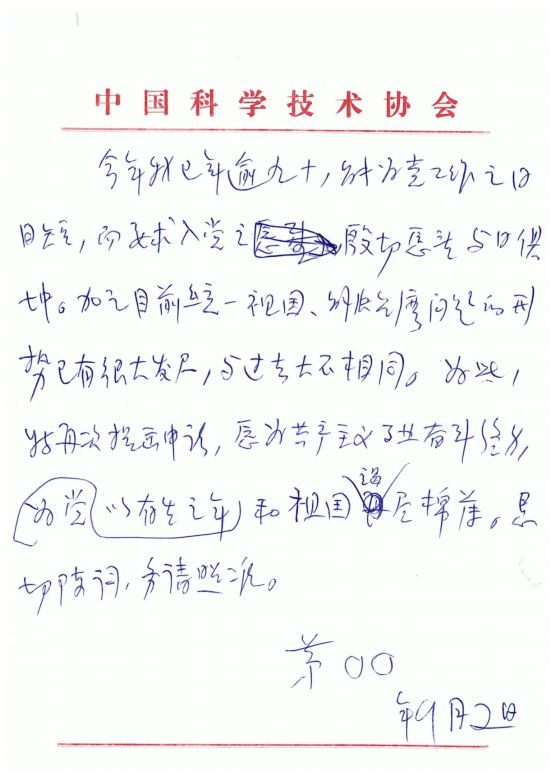 中国科学技术协会
今年我已年逾九十，能为党工作之日
日短，而要求入党之殷切愿望与日俱
增。加之目前统一祖国、解决台湾问题的形
势已有很大发展，与过去大不相同。为此，
特再次提出申请，愿为共产主义事业奋斗终身，
为党（以有生之年）和祖国竭尽绵薄。恳
切陈词，务请照准。
茅〇〇
年9月2日